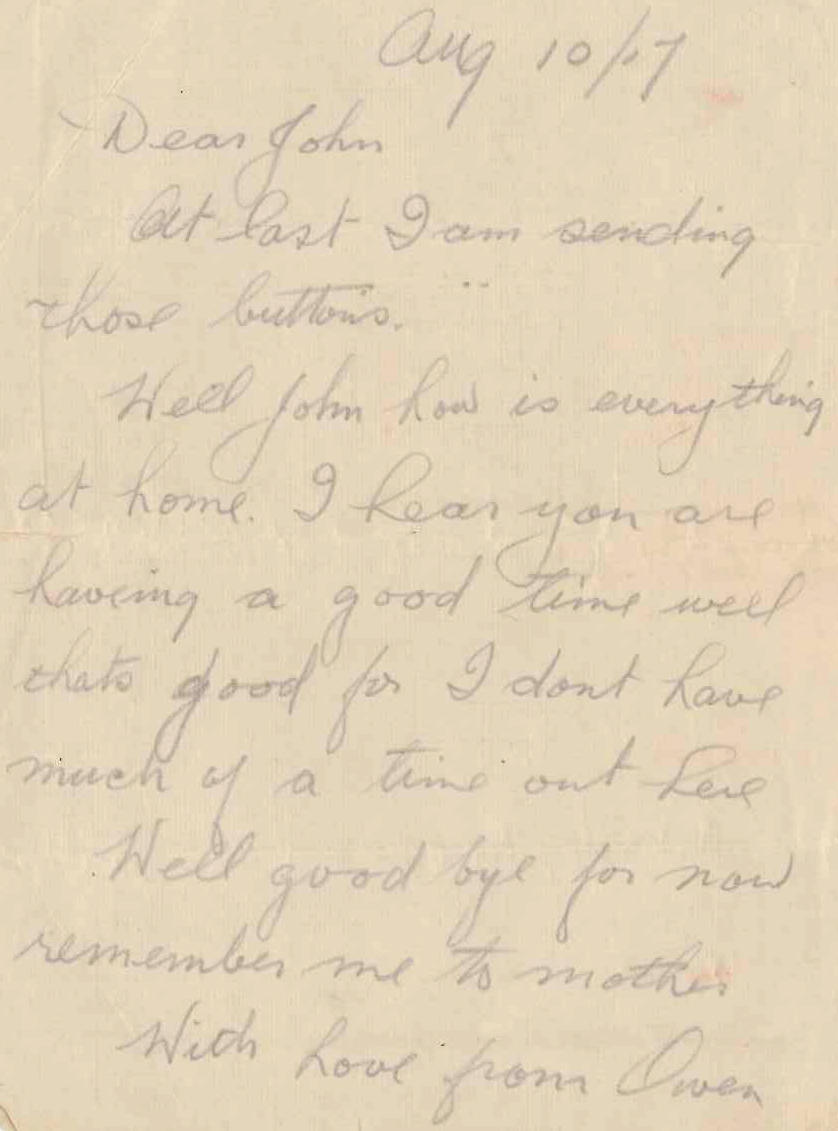 Aug 10/17
Dear John
At last I am sending
those buttons.
Well John how is everything
at home. I hear you are
haveing a good time well
thats good for I dont have
much of a time out here
Well good bye for now
remember me to mother
With love from Owen